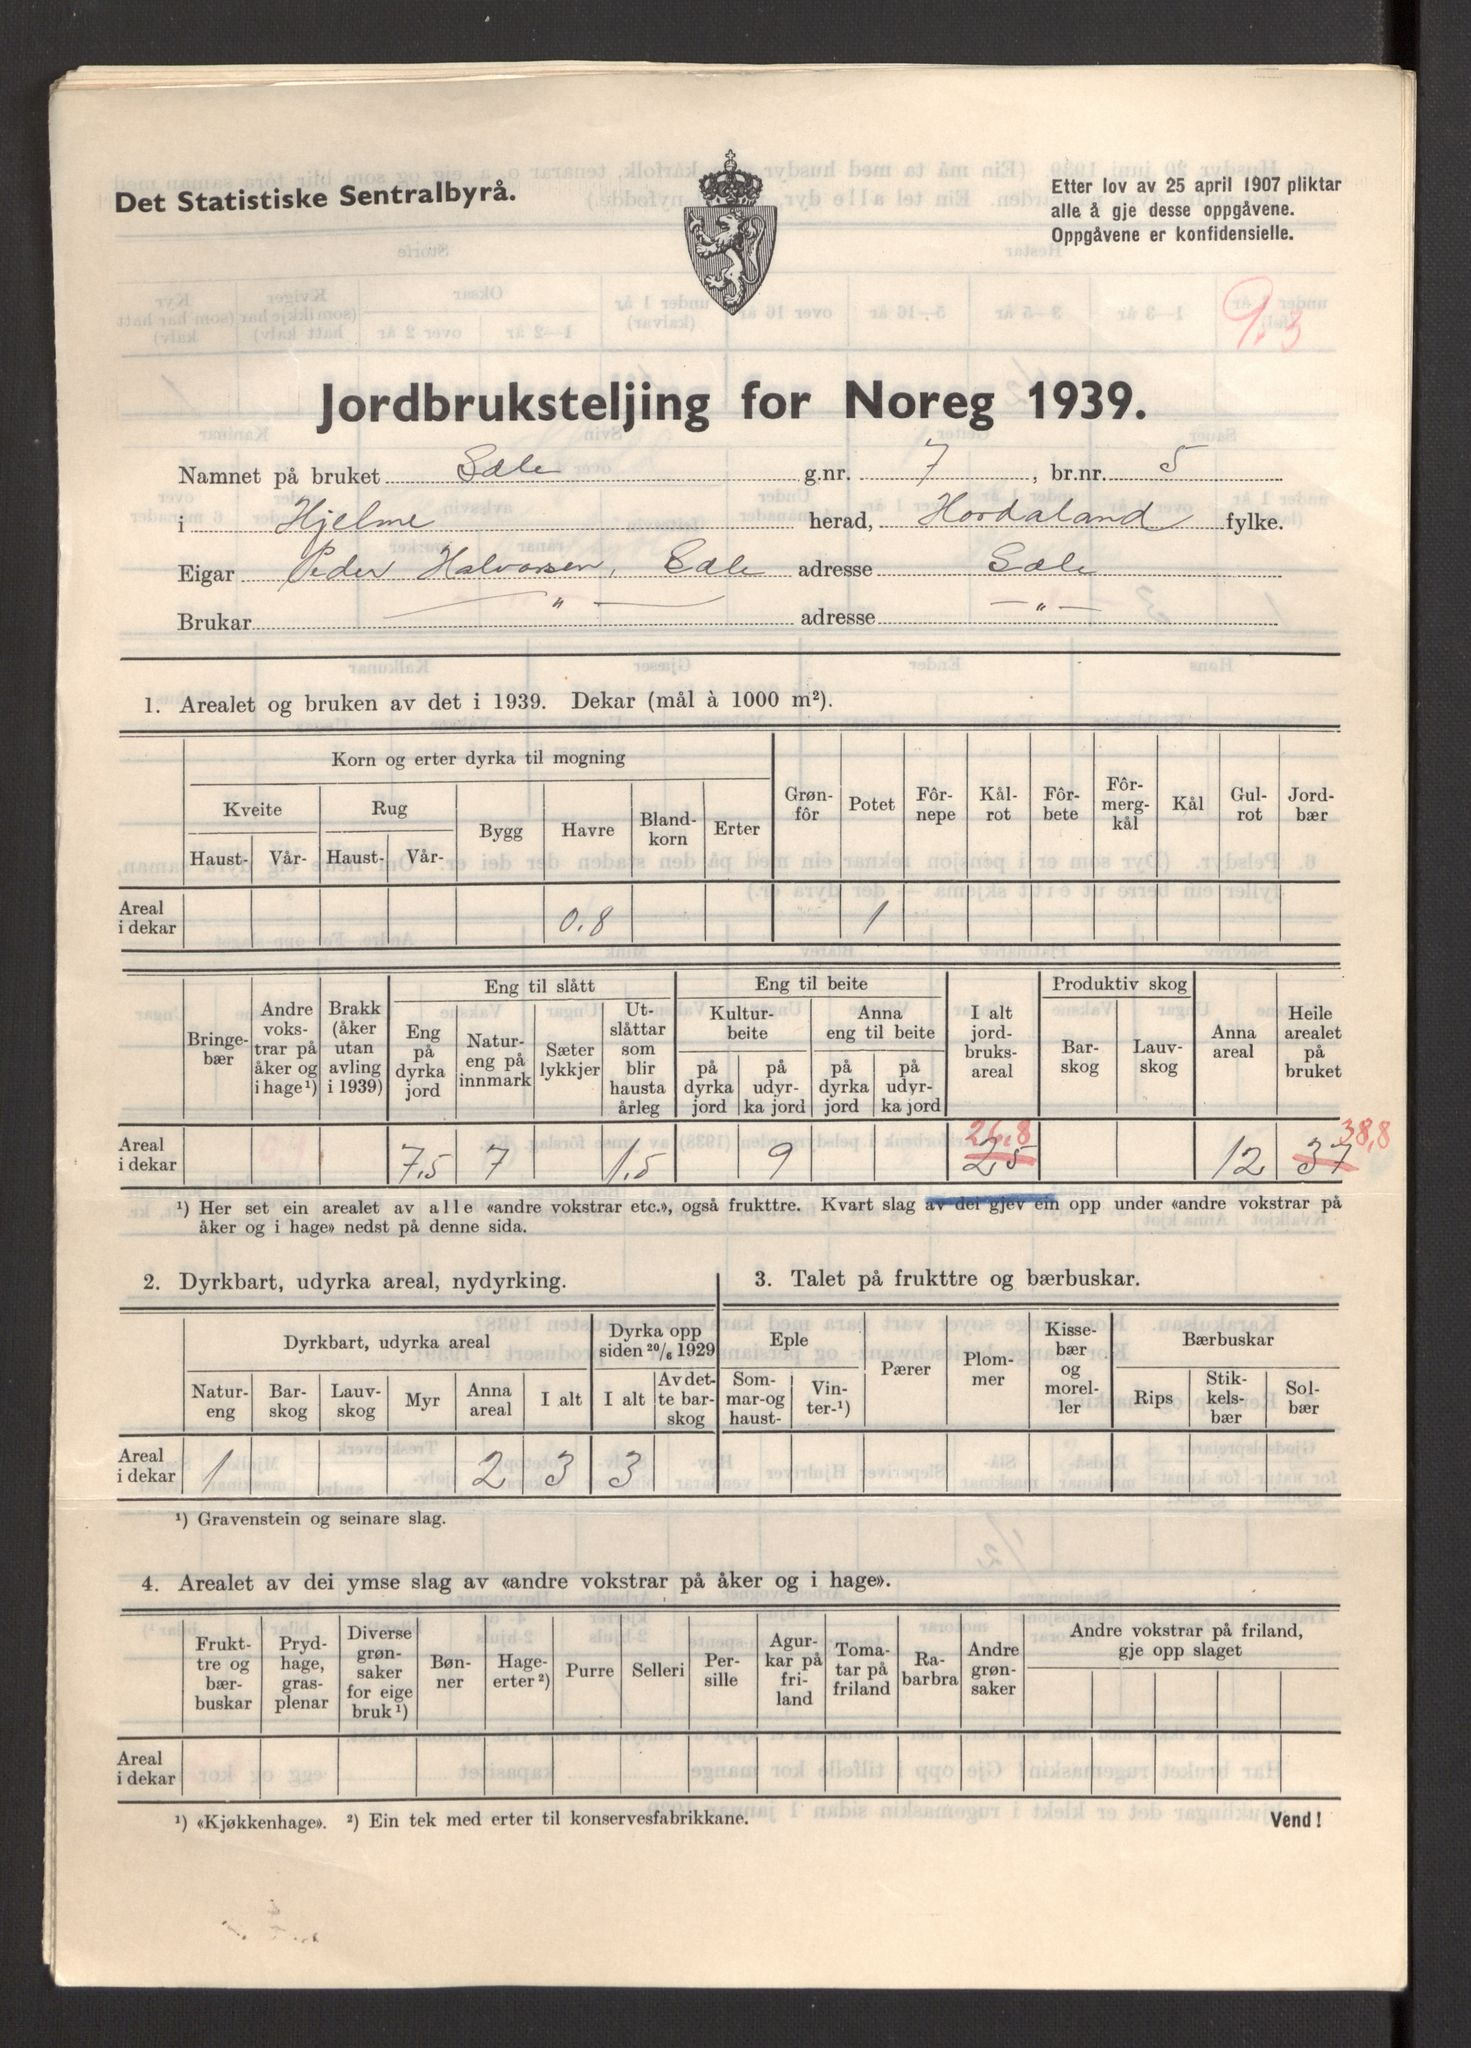 Det Statistiske Sentralbyrå.
Etter lov av 25 april 1907 pliktar
alle å gje desse oppgåvene.
Oppgåvene er konfidensielle.
9.3
Jordbruksteljing for Noreg 1939.
Namnet på bruket Sæle g.nr. 7, br.nr. 5
i Hjelme herad, Hordaland fylke.
Eigar Peder Halvorsen, Sæle adresse Sæle
Brukar — " — adresse — " —
1. Arealet og bruken av det i 1939. Dekar (mål à 1000 m²).
Korn og erter dyrka til mogning
Kveite Rug Bygg Havre Blandkorn Erter Grønfôr Potet Fôrnepe Kålrot Fôrbete Fôrmergkål Kål Gulrot Jordbær
Haust- Vår- Haust- Vår-
Areal i dekar 0.8 1
Eng til slått Eng til beite Produktiv skog
Bringebær Andre vokstrar på åker og i hage¹) Brakk (åker utan avling i 1939) Eng på dyrka jord Natureng på innmark Sæterlykkjer Utslåttar som blir hausta årleg Kulturbeite Anna eng til beite I alt jordbruksareal Barskog Lauvskog Anna areal Heile arealet på bruket
på dyrka jord på udyrka jord på dyrka jord på udyrka jord
26.8 38,8
Areal i dekar 7.5 7 1.5 9 25 12 37
¹) Her set ein arealet av alle «andre vokstrar etc.», også frukttre. Kvart slag av dei gjev ein opp under «andre vokstrar på
åker og i hage» nedst på denne sida.
2. Dyrkbart, udyrka areal, nydyrking.
Dyrkbart, udyrka areal Dyrka opp siden 20/6 1929
Natureng Barskog Lauvskog Myr Anna areal I alt I alt Av dette barskog
Areal i dekar 1 2 3 3
¹) Gravenstein og seinare slag.
3. Talet på frukttre og bærbuskar.
Eple Pærer Plommer Kissebær og moreller Bærbuskar
Sommar-og haust- Vinter-¹) Rips Stikkelsbær Solbær
4. Arealet av dei ymse slag av «andre vokstrar på åker og i hage».
Frukttre og bærbuskar Prydhage, grasplenar Diverse grønsaker for eige bruk¹) Bønner Hageerter²) Purre Selleri Persille Agurkar på friland Tomatar på friland Rabarbra Andre grønsaker Andre vokstrar på friland, gje opp slaget
Areal i dekar
¹) «Kjøkkenhage». ²) Ein tek med erter til konservesfabrikkane.
Vend!